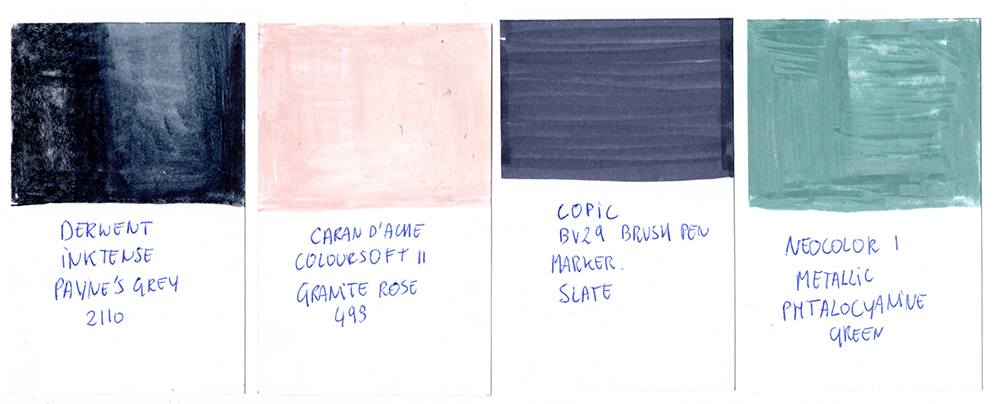 DERWENT
INKTENSE
PAYNE'S GREY
2110
CARAN D'ACHE
COLOURSOFT II
GRANITE ROSE
493
COPIC
BV29 BRUSH PEN
MARKER.
SLATE
NEOCOLOR I
METALLIC
PHTALOCYANINE
GREEN